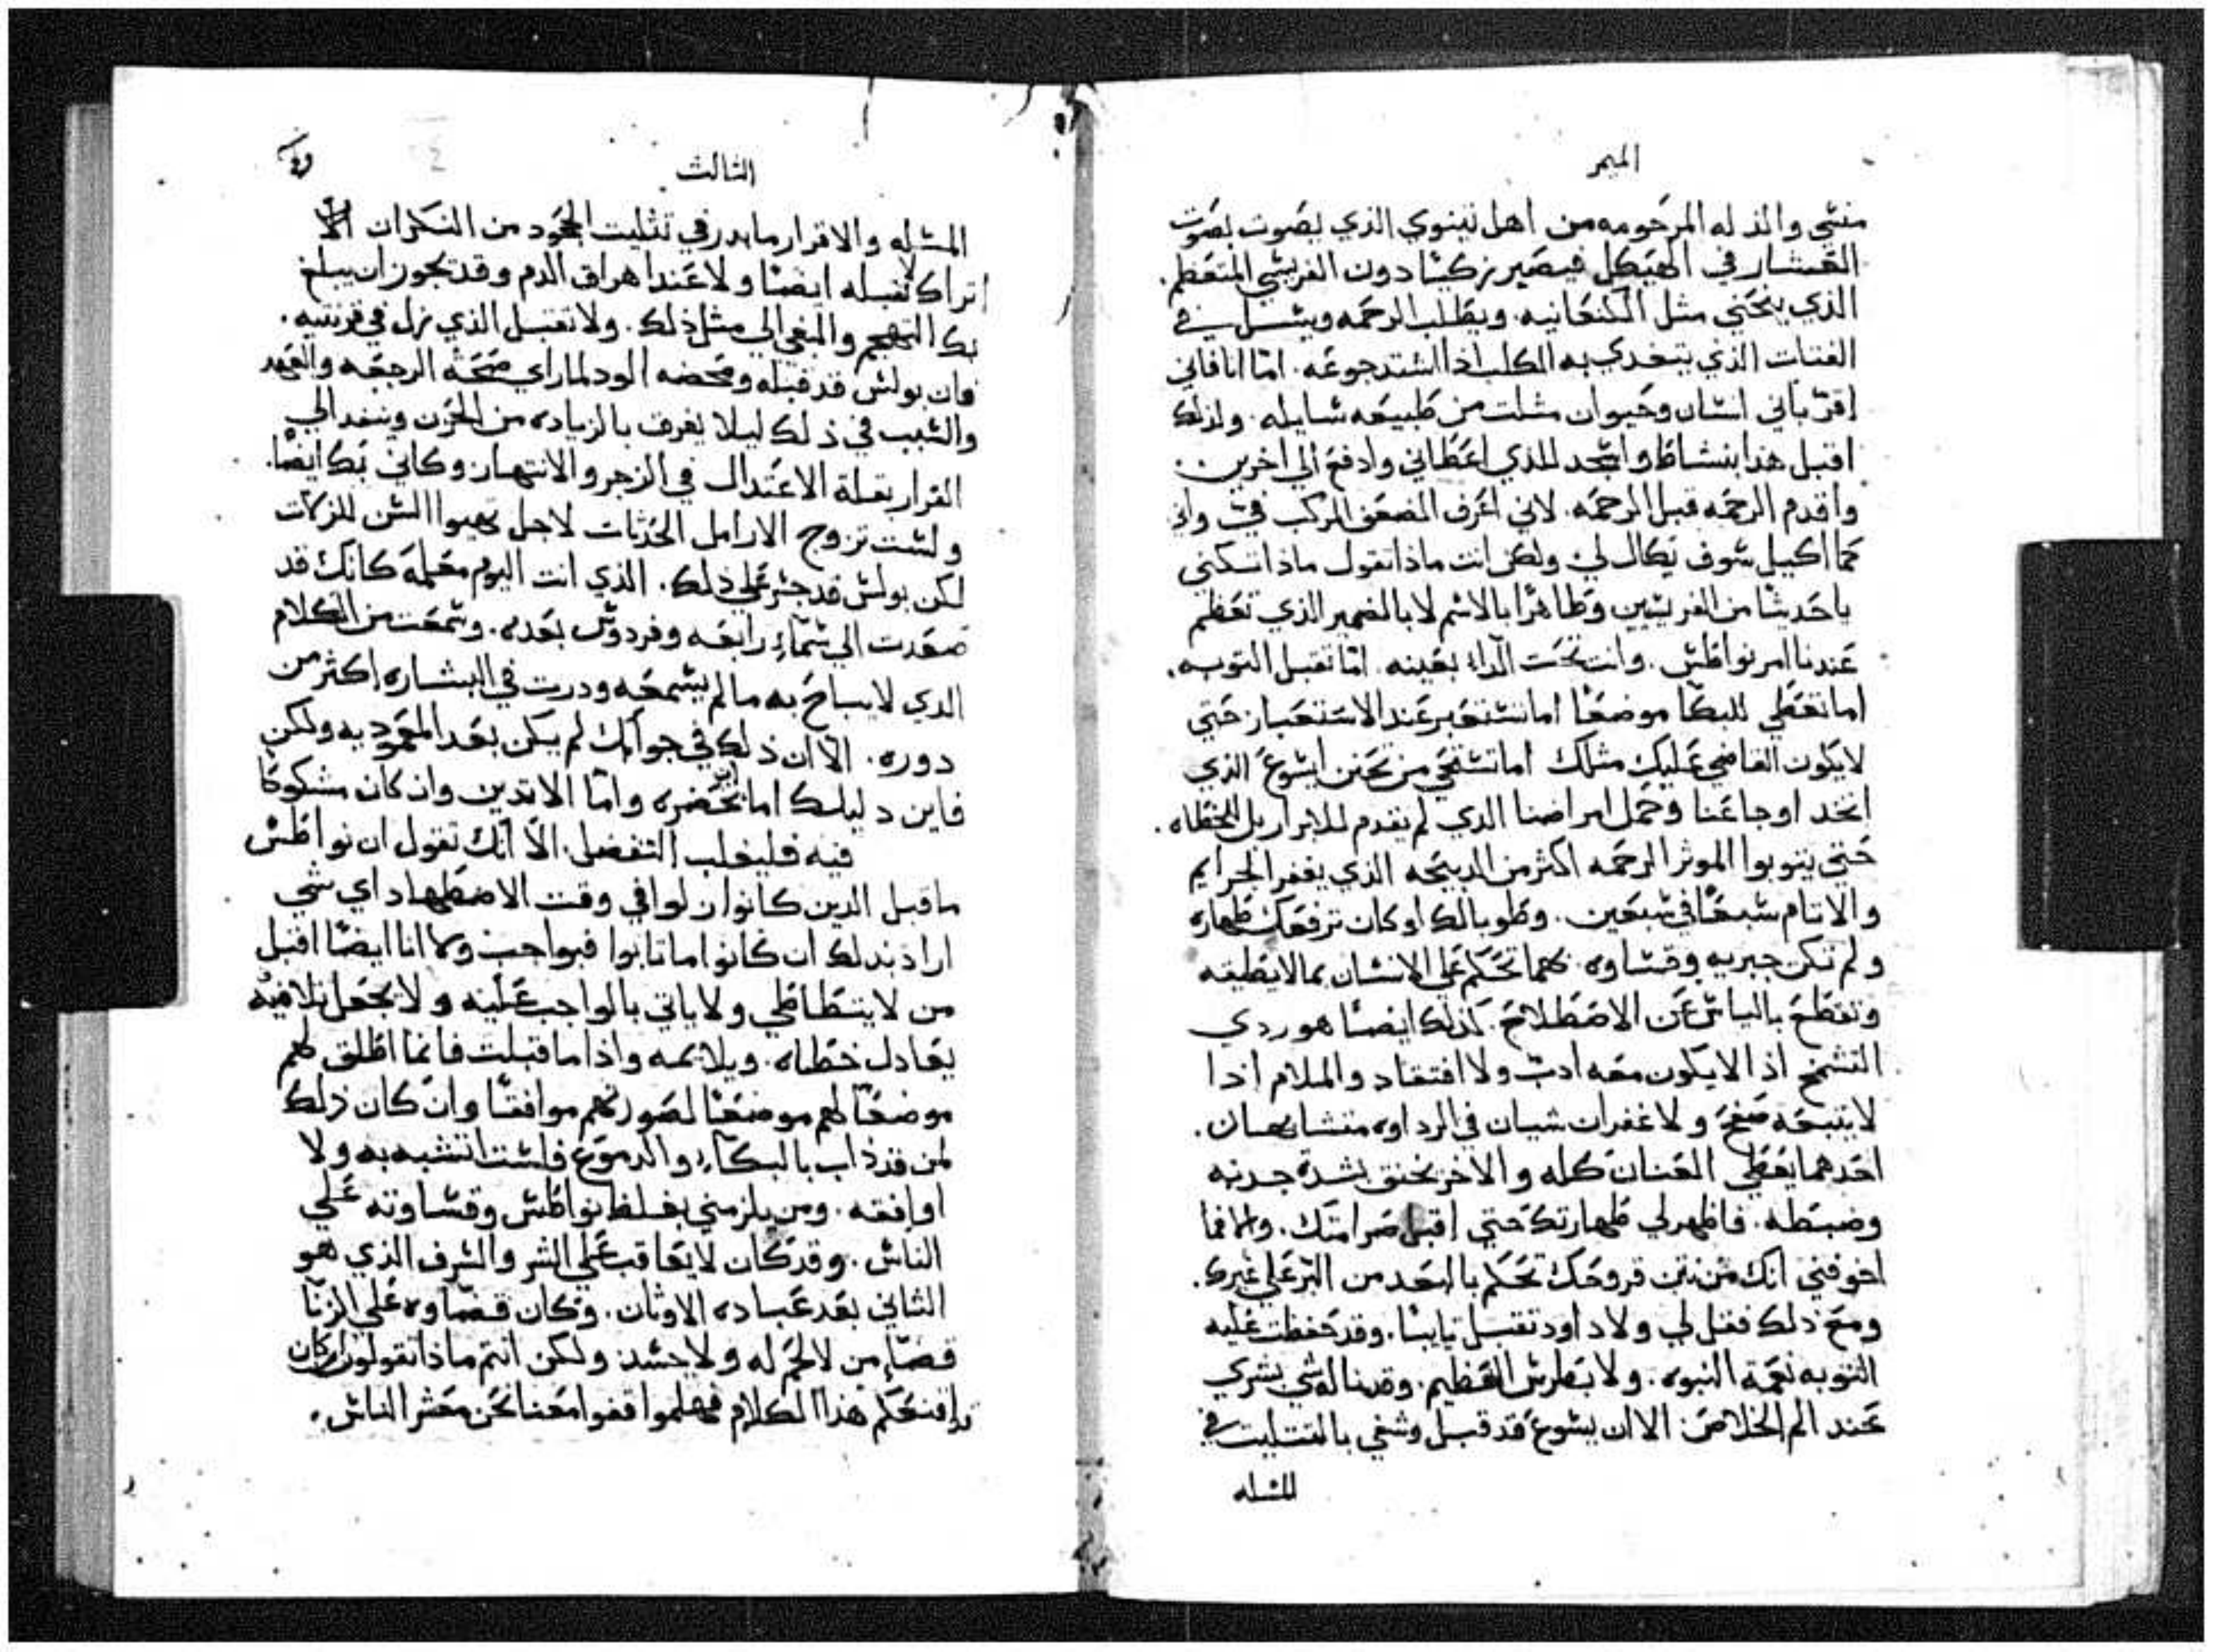 الميمر
منسّي والمذله المرحومه من اهل نينوي الذي يصوت بصوت
العشار في الهيكل فيصير زكيًا دون الفريسي المتعظم.
الذي ينحني مثل الكنعانيه. ويطلب الرحمه ويسل في
الفتات الذي يتغدي به الكلب اذا اشتد جوعه. امّا انا فاني
اقرّ باني انسان وحيوان مثلت من طبيعه سايله. ولذلك
اقبل هذا بنشاط واسجد للذي اعطاني وادفع الي اخرين.
واقدم الرحمه قبل الرحمه. لاني اعرف الضعف المركب فيّ واني
كما اكيل سوف يكال لي ولكن انت ماذا تقول ماذا تسكني
ياحديثا من الفريسيين وطاهرًا بالاسم لا بالضمير الذي تعظم
عندنا امر نواطس. وانت تحت الداء بعينه. امّا تقبل التوبه.
اما تعطي للبكا موضعًا اما تستعبر عند الاستعبار حتي
لا يكون القاضي عليك مثلك اما تستحي من تحنن ايسوع الذي
اتخد اوجاعنا وحمل امراضنا الدي لم يقدم للابرار بل للخطاه.
حتي يتوبوا الموثر الرحمه اكثر من الدبيحه الذي يغفر الجرايم
والاتام سبعًا في سبعين. وطوبا لك لو كان ترفعك طهاره
ولم تكن جبريه وقساوه. كلما تحكم علي الانسان بما لا يطيقه
وتقطع بالياس عن الاصطلاح. كذلك ايضًا هو ردي
التسمح اذ الا يكون معه ادب ولا افتقاد والملام اذا
لا يتبعه صفح ولا غفران سيان في الرداوه متشابهان.
احدهما يعطي العنان كله والاخر يخنق بشدة جدبه
وضبطه. فاظهر لي طهارتك حتي اقبل صرامتك. والا فما
اخوفني انك من نتن قروحك تحكم بالبعد من البر علي غيرك.
ومع ذلك فقل لي ولا داود تقبل تايبًا. وقد حفظت عليه
التوبه نعمة النبوه. ولا بطرس العظيم. وقد ناله شي بشري
عند الم الخلاص الا ان يسوع قد قبل وشفي بالتتليت في
المسله
الثالث
المسله والاقرار ما بدر في تثليت الجحود من النكران الا
اتراك لا تقبله ايضًا ولا عند اهراق الدم وقد يجوز ان يبلغ
بك التهجم والبغي الي مثل ذلك. ولا تقبل الذي زل في قرنتيه.
فان بولس قد قبله ومحضه الود لما راي صحة الرجعه والعهد
والسبب في ذلك ليلا يغرف بالزياده من الحزن وينفد الي
القرار بقلة الاعتدال في الزجر والانتهار وكاني بك ايضًا.
ولست تزوج الارامل الحدثات لاجل تهيوا السن للزلات
لكن بولس قد جسر علي ذلك. الذي انت اليوم معلمه كانك قد
صعدت الي سماء رابعه وفردوس بعده. وسمعت من الكلام
الدي لا يباح به ما لم يسمعه ودرت في البشاره اكثر من
دوره. الا ان ذلك في جوابك لم يكن بعد المعموديه ولكن
فاين دليلك اما تحضره وامّا الا تدين وان كان مشكوكًا
فيه فليغلب التفضل الا انك تقول ان نواطس
ما قبل الدين كانوا زلوا في وقت الاضطهاد اي شي
اراد بذلك ان كانوا ما تابوا فبواجب ولا انا ايضًا اقبل
من لا يتطاطي ولا ياتي بالواجب عليه ولا يجعل تلافيه
يعادل خطاه. ويلايمه واذا ما قبلت فانما اطلق لهم
موضعًا لهم موضعًا لصورتهم موافقًا وان كان ذلك
لمن قد ذاب بالبكاء والدموع فلست اتشبه به ولا
اوافقه. ومن يلزمني بغلظ نواطس وقساوته علي
الناس. وقد كان لا يعاقب علي الشر والشرف الذي هو
الثاني بعد عباده الاوثان. وكان قضاوه علي الزنا
قضاء من لا لحم له ولا جسد ولكن انتم ماذا تقولون ان كان
قد اقنعكم هذا الكلام فهلموا قفوا معنا نحن معشر الناس.